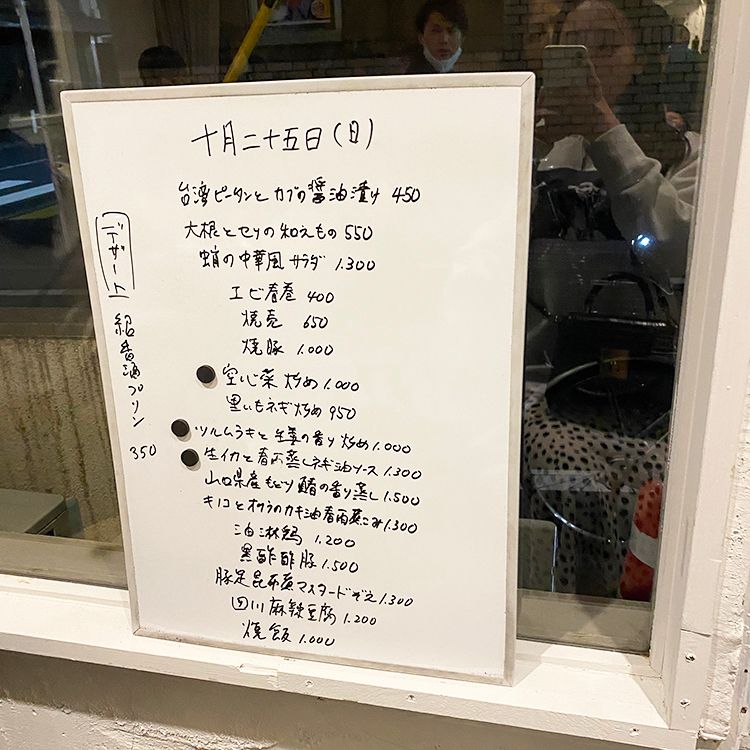 十月二十五日(日)
台湾ピータンとカブの醤油漬け 450
大根とセリの和えもの 550
蛸の中華風サラダ 1.300
エビ春巻 400
焼売 650
焼豚 1.000
空心菜炒め 1.000
里いもネギ炒め 950
ツルムラサキと生姜の香り炒め 1.000
生イカと春雨蒸しネギ油ソース 1.300
山口県産もどり鰆の香り蒸し 1.500
キノコとオクラのカキ油春雨煮こみ 1.300
油淋鶏 1.200
黒酢酢豚 1.500
豚足昆布煮マスタードぞえ 1.300
四川麻辣豆腐 1.200
焼飯 1.000
デザート
紹香酒プリン
350